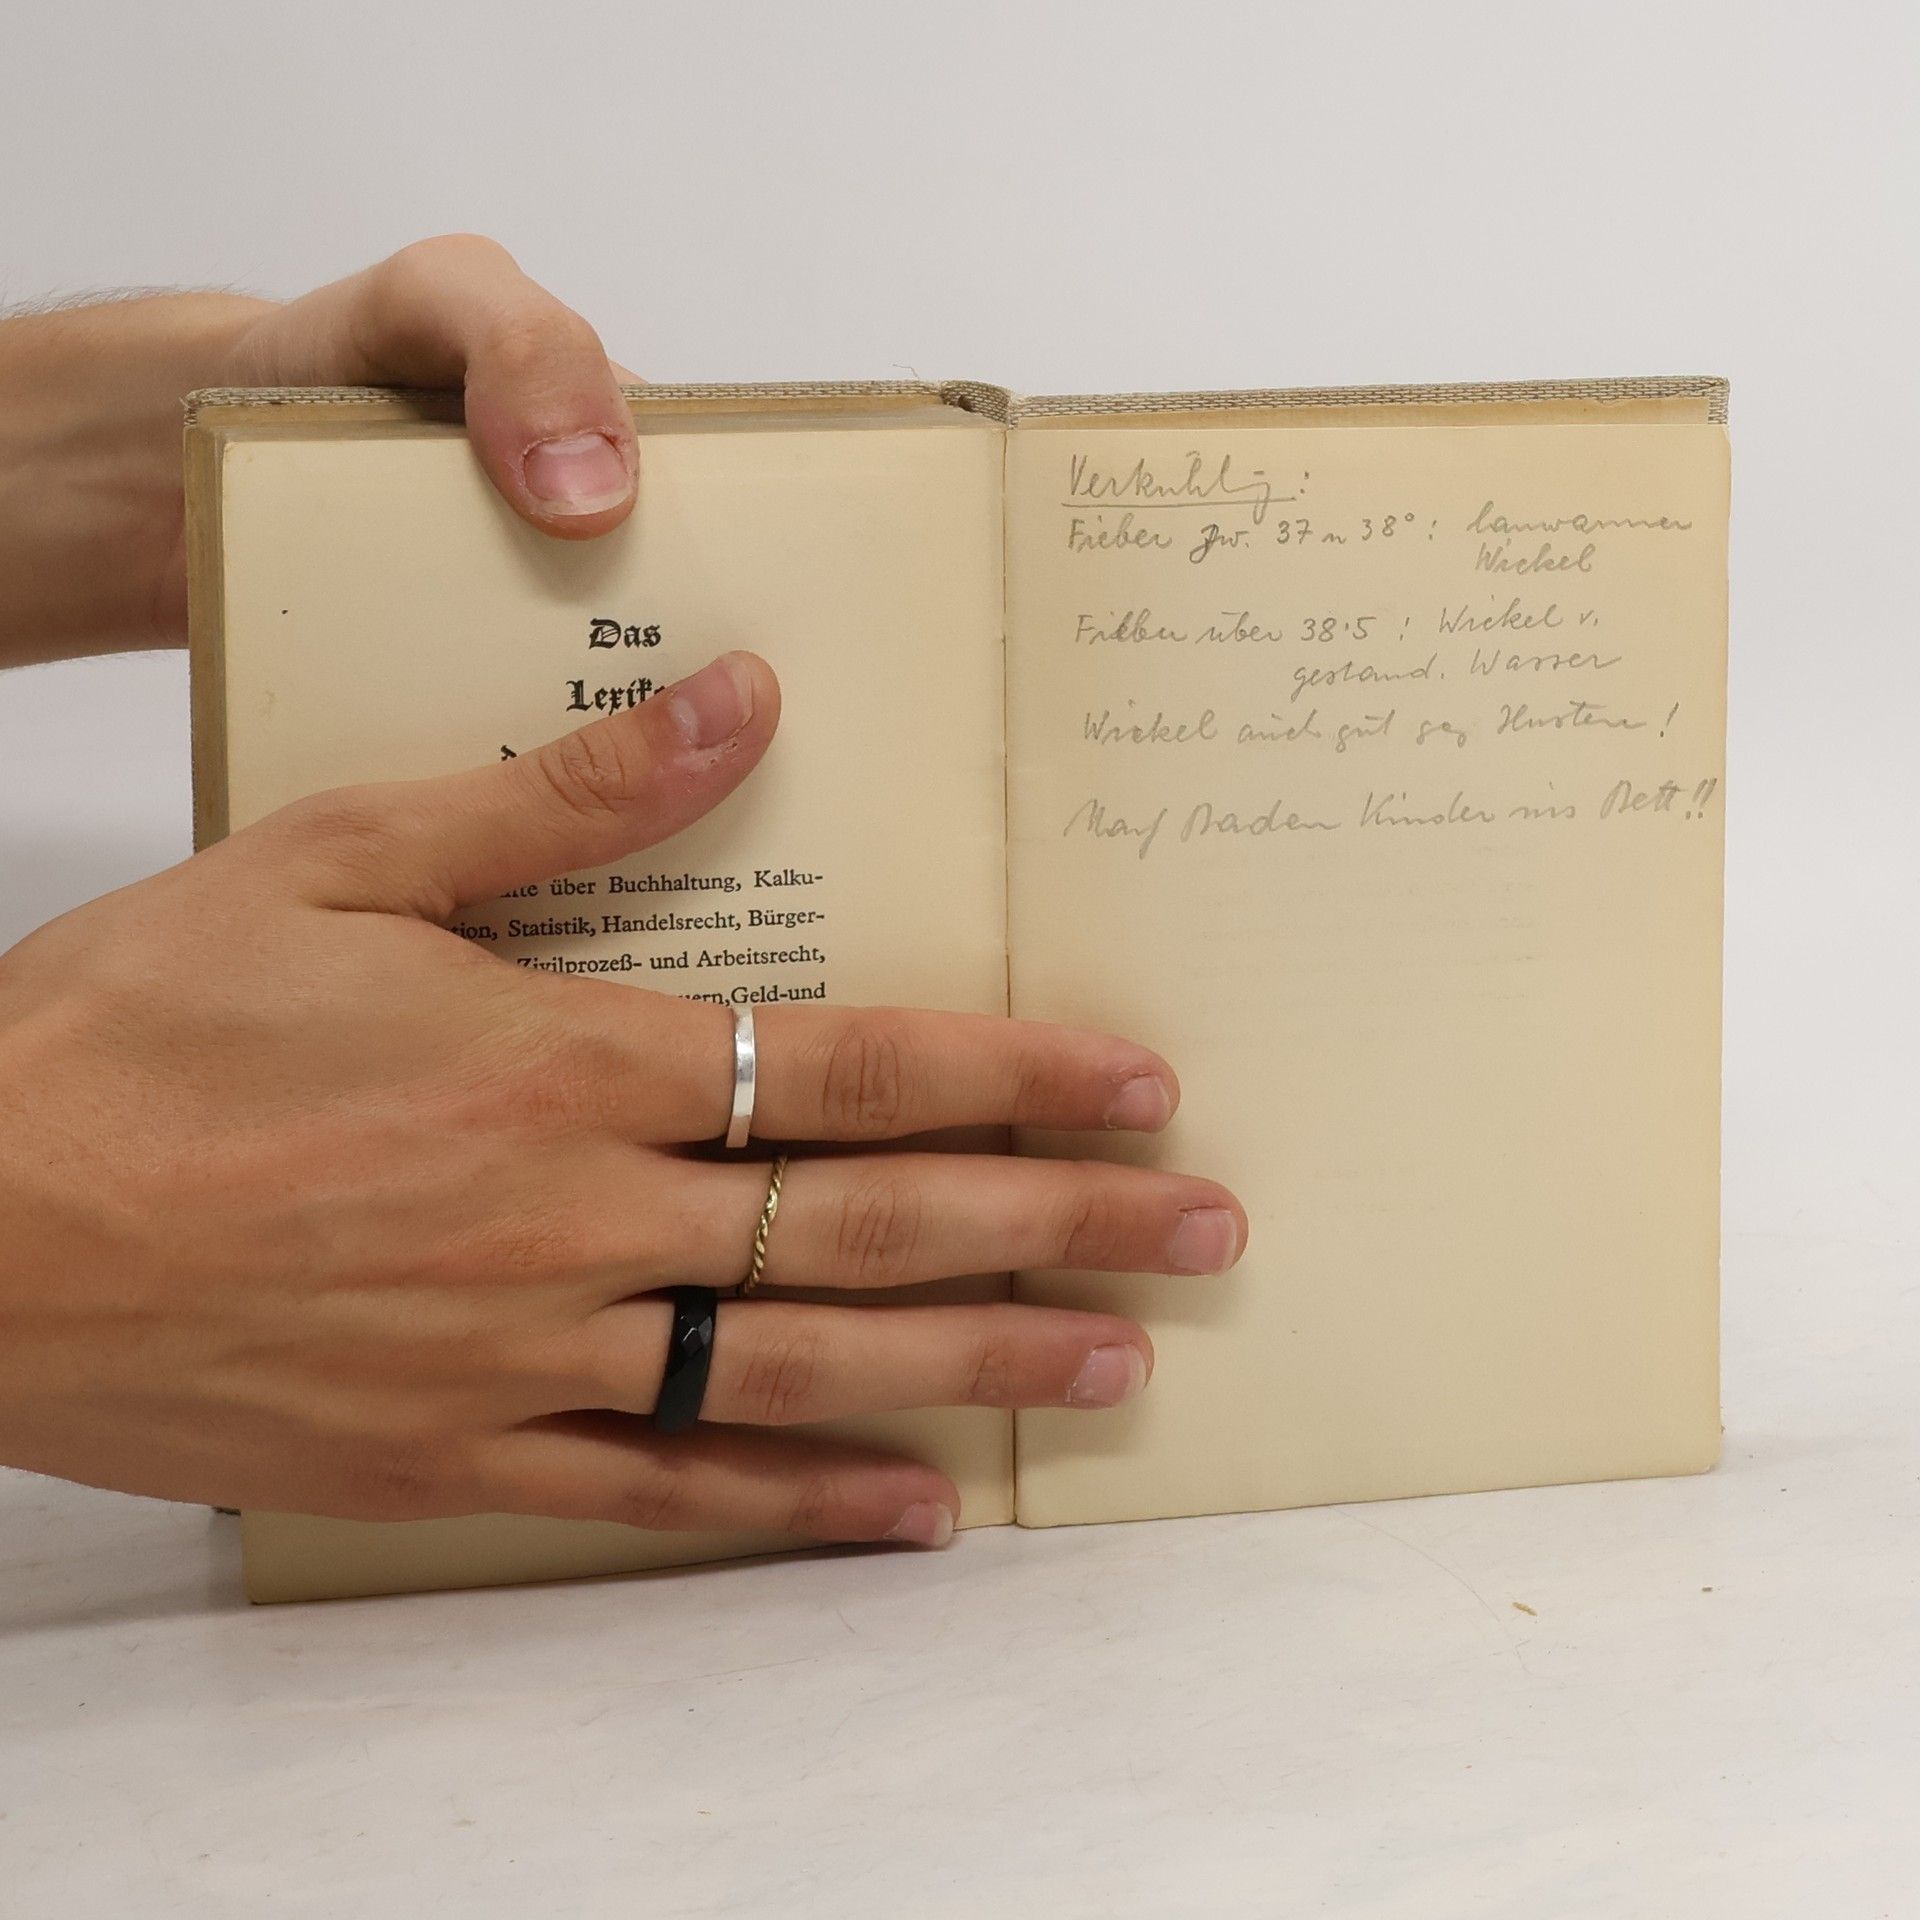 Das
Lexik
über Buchhaltung, Kalku-
tion, Statistik, Handelsrecht, Bürger-
Zivilprozeß- und Arbeitsrecht,
uern, Geld-und
Verkühlg:
Fieber zw. 37 u 38° : lauwarmer
Wickel
Fieber über 38·5 : Wickel v.
gestand. Wasser
Wickel auch gut geg Husten !
Baden Kinder ins Bett !!